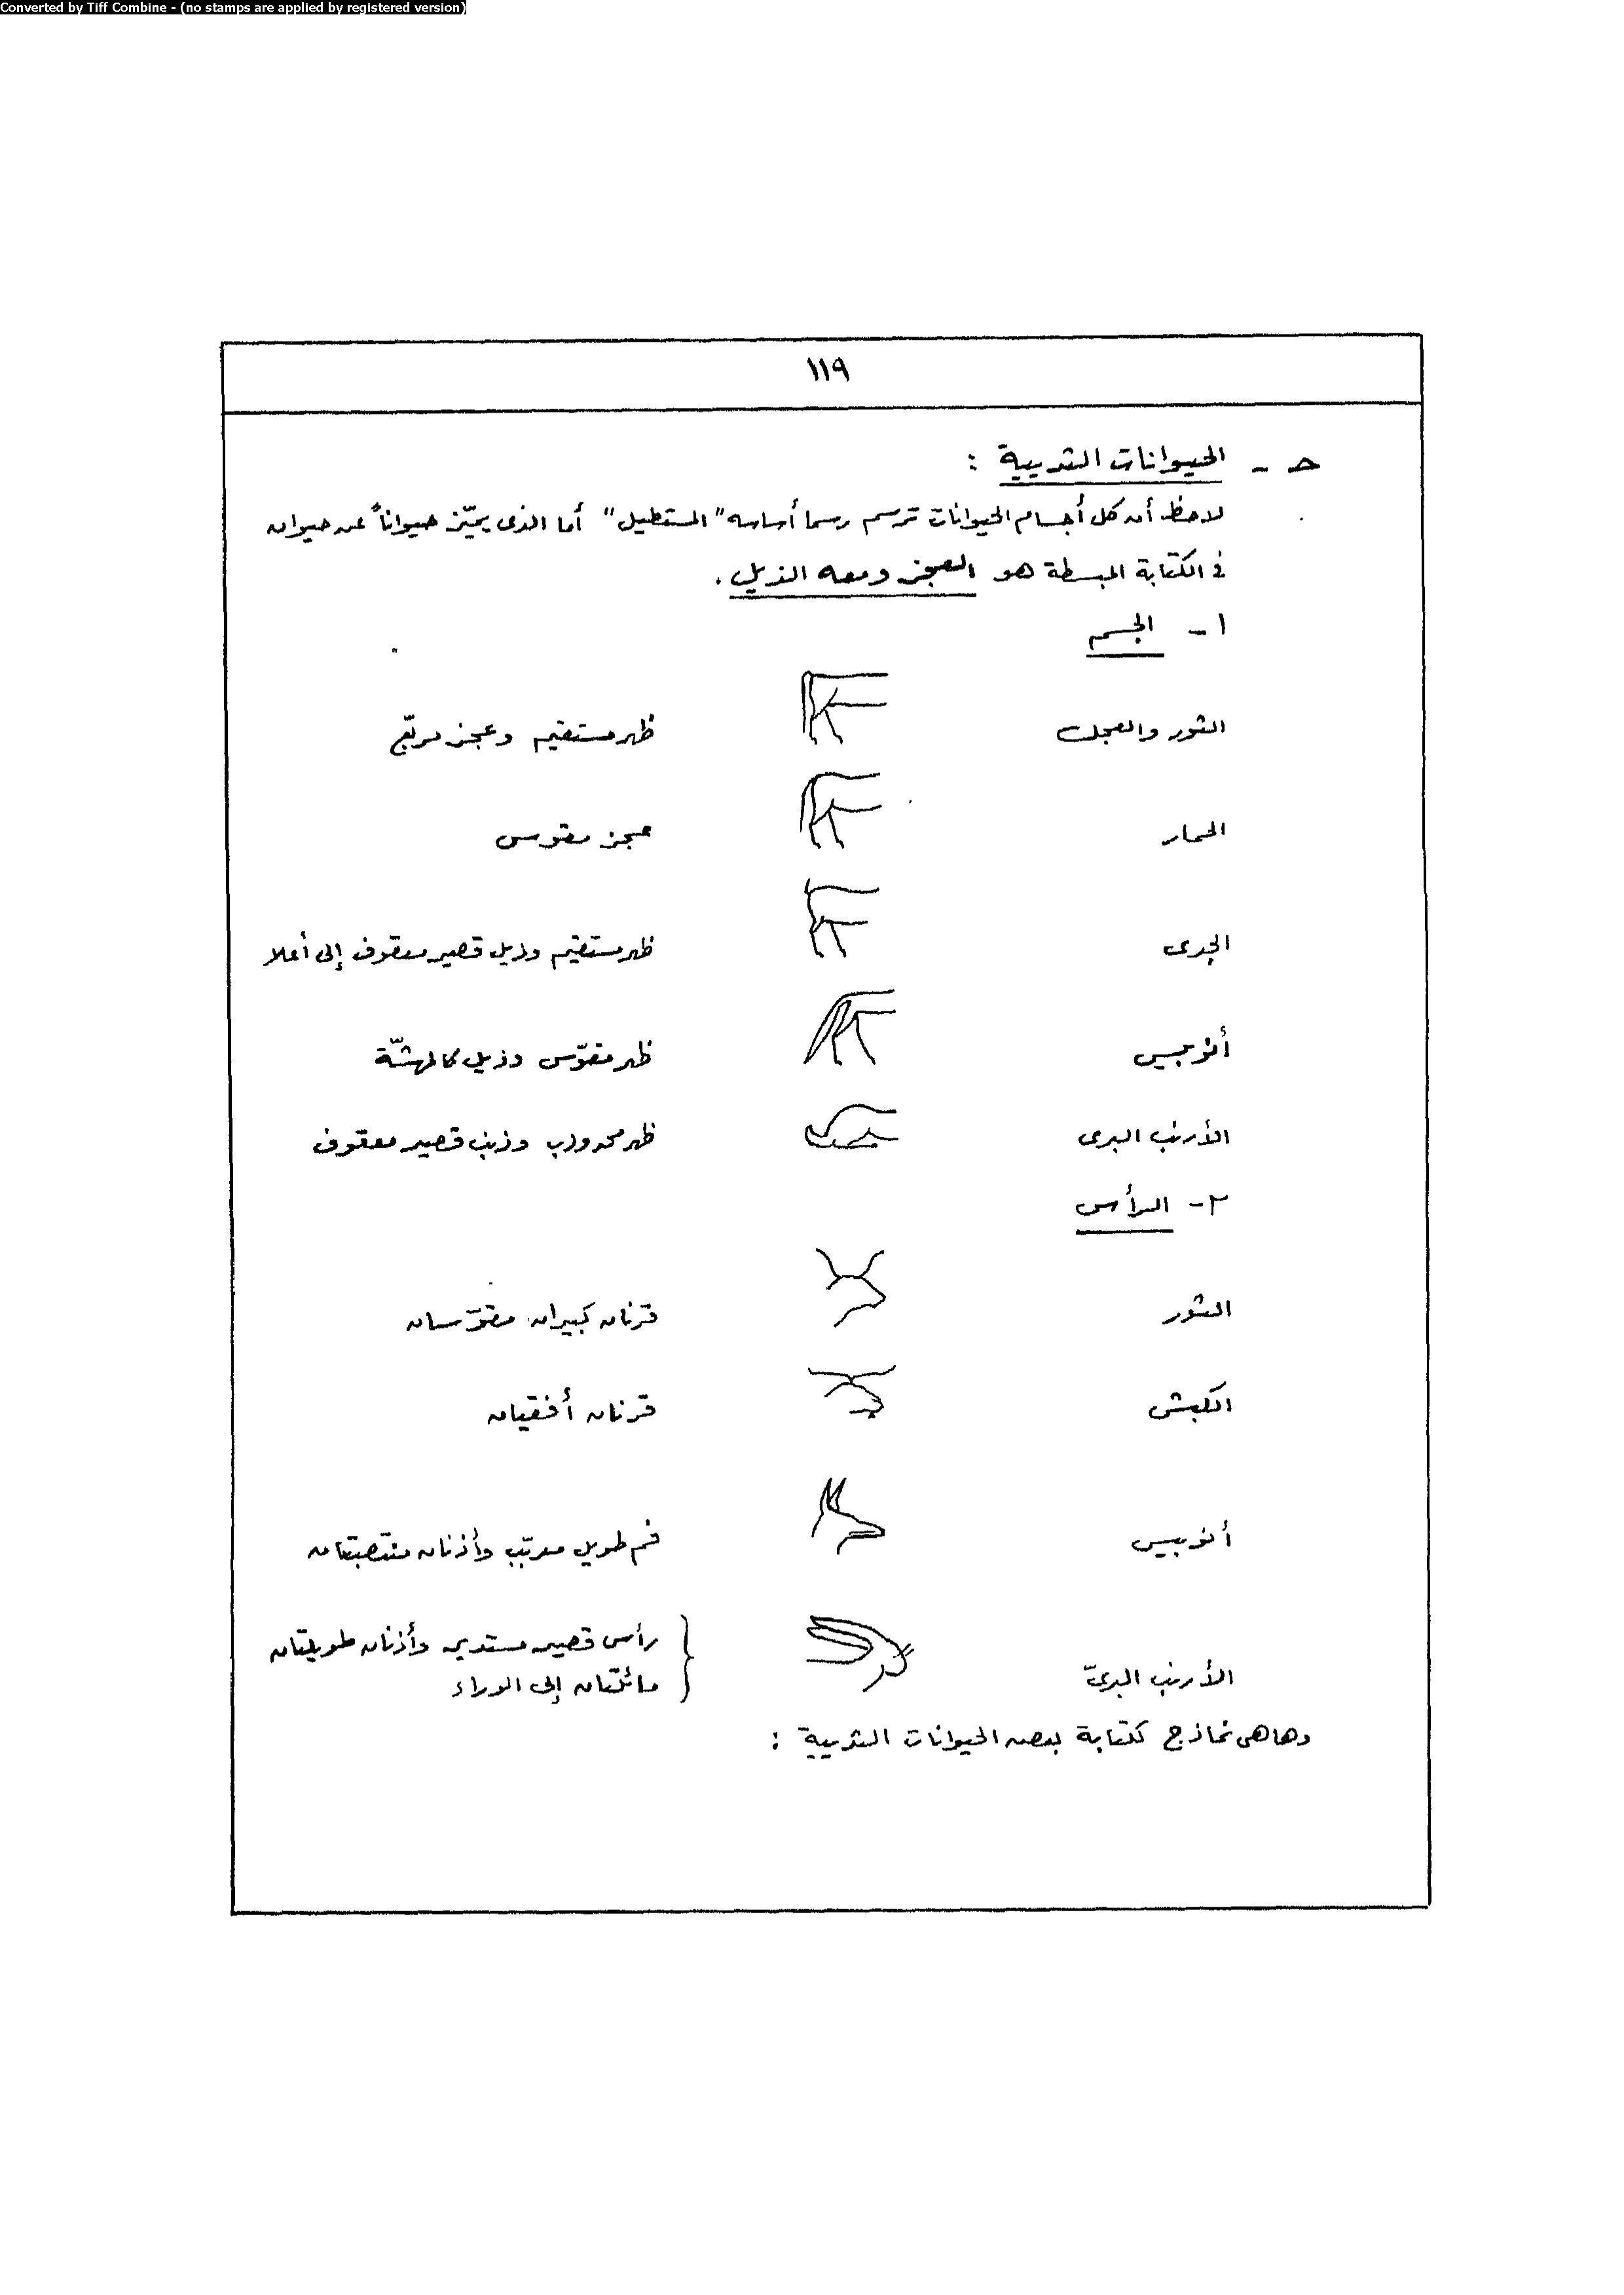 Converted by Tiff Combine - (no stamps are applied by registered version)
١١٩
حـ - الحيوانات الثديية :
لاحظ أن كل أجسام الحيوانات ترسم رسما أساسه "المستطيل" أما الذى يميّز حيواناً عن حيوان
فى الكتابة المبسطة هو العجز ومعه الذيل .
١ - الجسم
الثور والعجل ظهر مستقيم وعجز مربّع
الحمار عجز مقوس
الجدى ظهر مستقيم وذيل قصير معقوف إلى أعلا
أنوبيس ظهر مقوّس وذيل كالمهشّة
الأرنب البرى ظهر محدودب وذنب قصير معقوف
٢ - الرأس
الثور قرنان كبيران مقوّسان
الكبش قرنان أفقيان
أنوبيس فم طويل مدبّب وأذنان منتصبتان
الأرنب البرىّ رأس قصير مستدير وأذنان طويلتان
مائلتان إلى الوراء
وها هى نماذج لكتابة بعض الحيوانات الثديية :